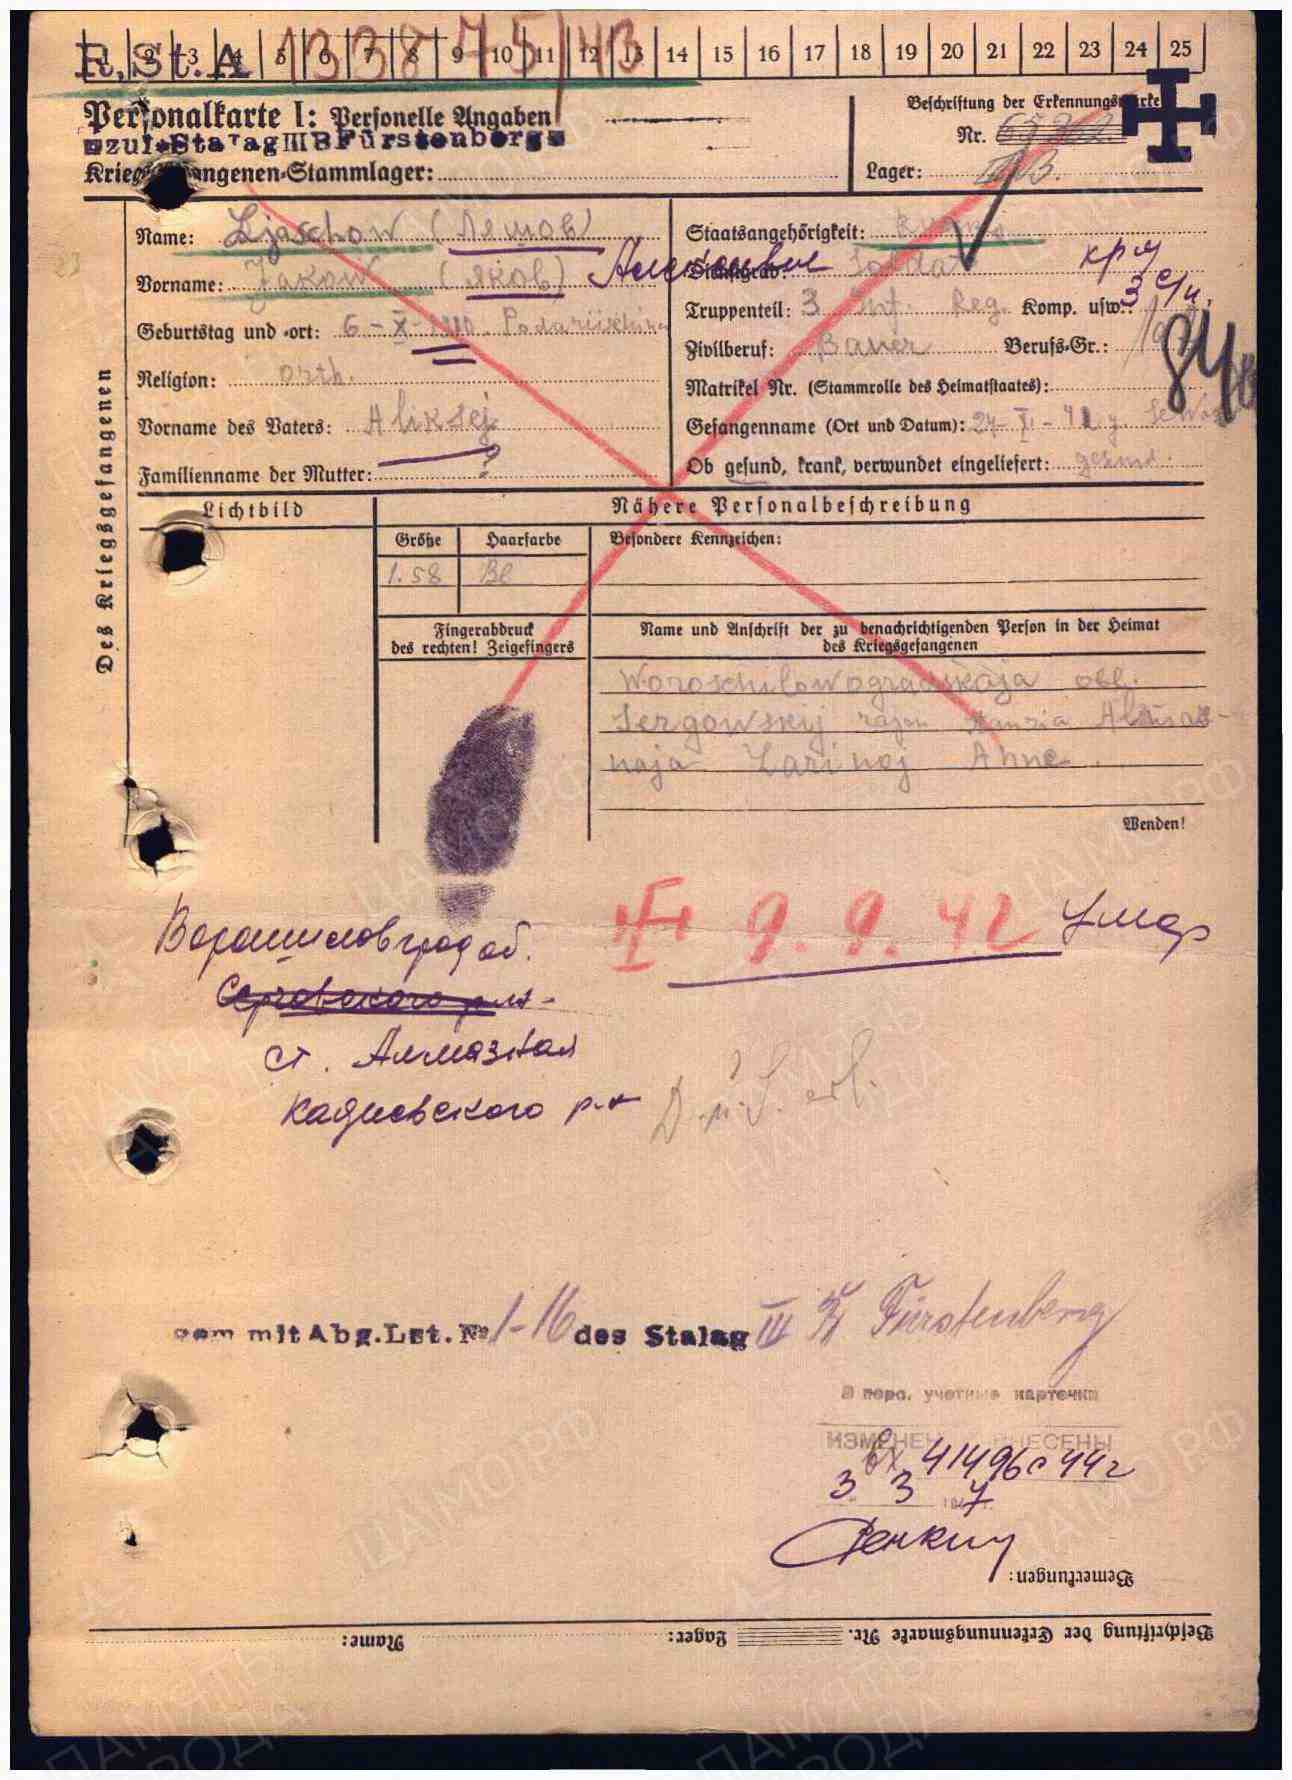 1 2 3 4 5 6 7 8 9 10 11 12 13 14 15 16 17 18 19 20 21 22 23 24 25
R.St.A 133875/43
Personalkarte I: Personelle Angaben
zul. Stalag III B Fürstenberg
Kriegsgefangenen-Stammlager:
Beschriftung der Erkennungsmarke
Nr.
Lager: III B.
Des Kriegsgefangenen
Name: Ljaschow (Ляшов)
Vorname: Jakow (Яков) Алексеевич
Geburtstag und -ort: 6-X-1910.
Religion: orth.
Vorname des Vaters: Aliksej
Familienname der Mutter: ?
Staatsangehörigkeit:
Dienstgrad: Soldat кр-ц
Truppenteil: 3 Inf. Reg. Komp. usw.: 3 с/п.
Zivilberuf: Bauer Berufs-Gr.:
84
Matrikel Nr. (Stammrolle des Heimatstaates):
Gefangenname (Ort und Datum):
Ob gesund, krank, verwundet eingeliefert: gesund.
Lichtbild
Nähere Personalbeschreibung
Größe Haarfarbe Besondere Kennzeichen:
1.58 Bl
Fingerabdruck
des rechten! Zeigefingers
Name und Anschrift der zu benachrichtigenden Person in der Heimat
des Kriegsgefangenen
Woroschilowogradskaja obl.
Sergowskij rajon
naja Larinoj Anne
Wenden!
9.9.42 Умер
Ворошиловград об.
Серговского р-н
ст. Алмазная
Кадиевского р-н
D.u.S. erl.
gem mit Abg.Lst. № 1-16 des Stalag III B Fürstenberg
В перс. учетные карточки
ИЗМЕНЕНИЯ ВНЕСЕНЫ
Вх 41496с 44г
3 3 1947
Bemerkungen:
Name: Lager: Beschriftung der Erkennungsmarke Nr.
ЦАМО.РФ
ПАМЯТЬ НАРОДА